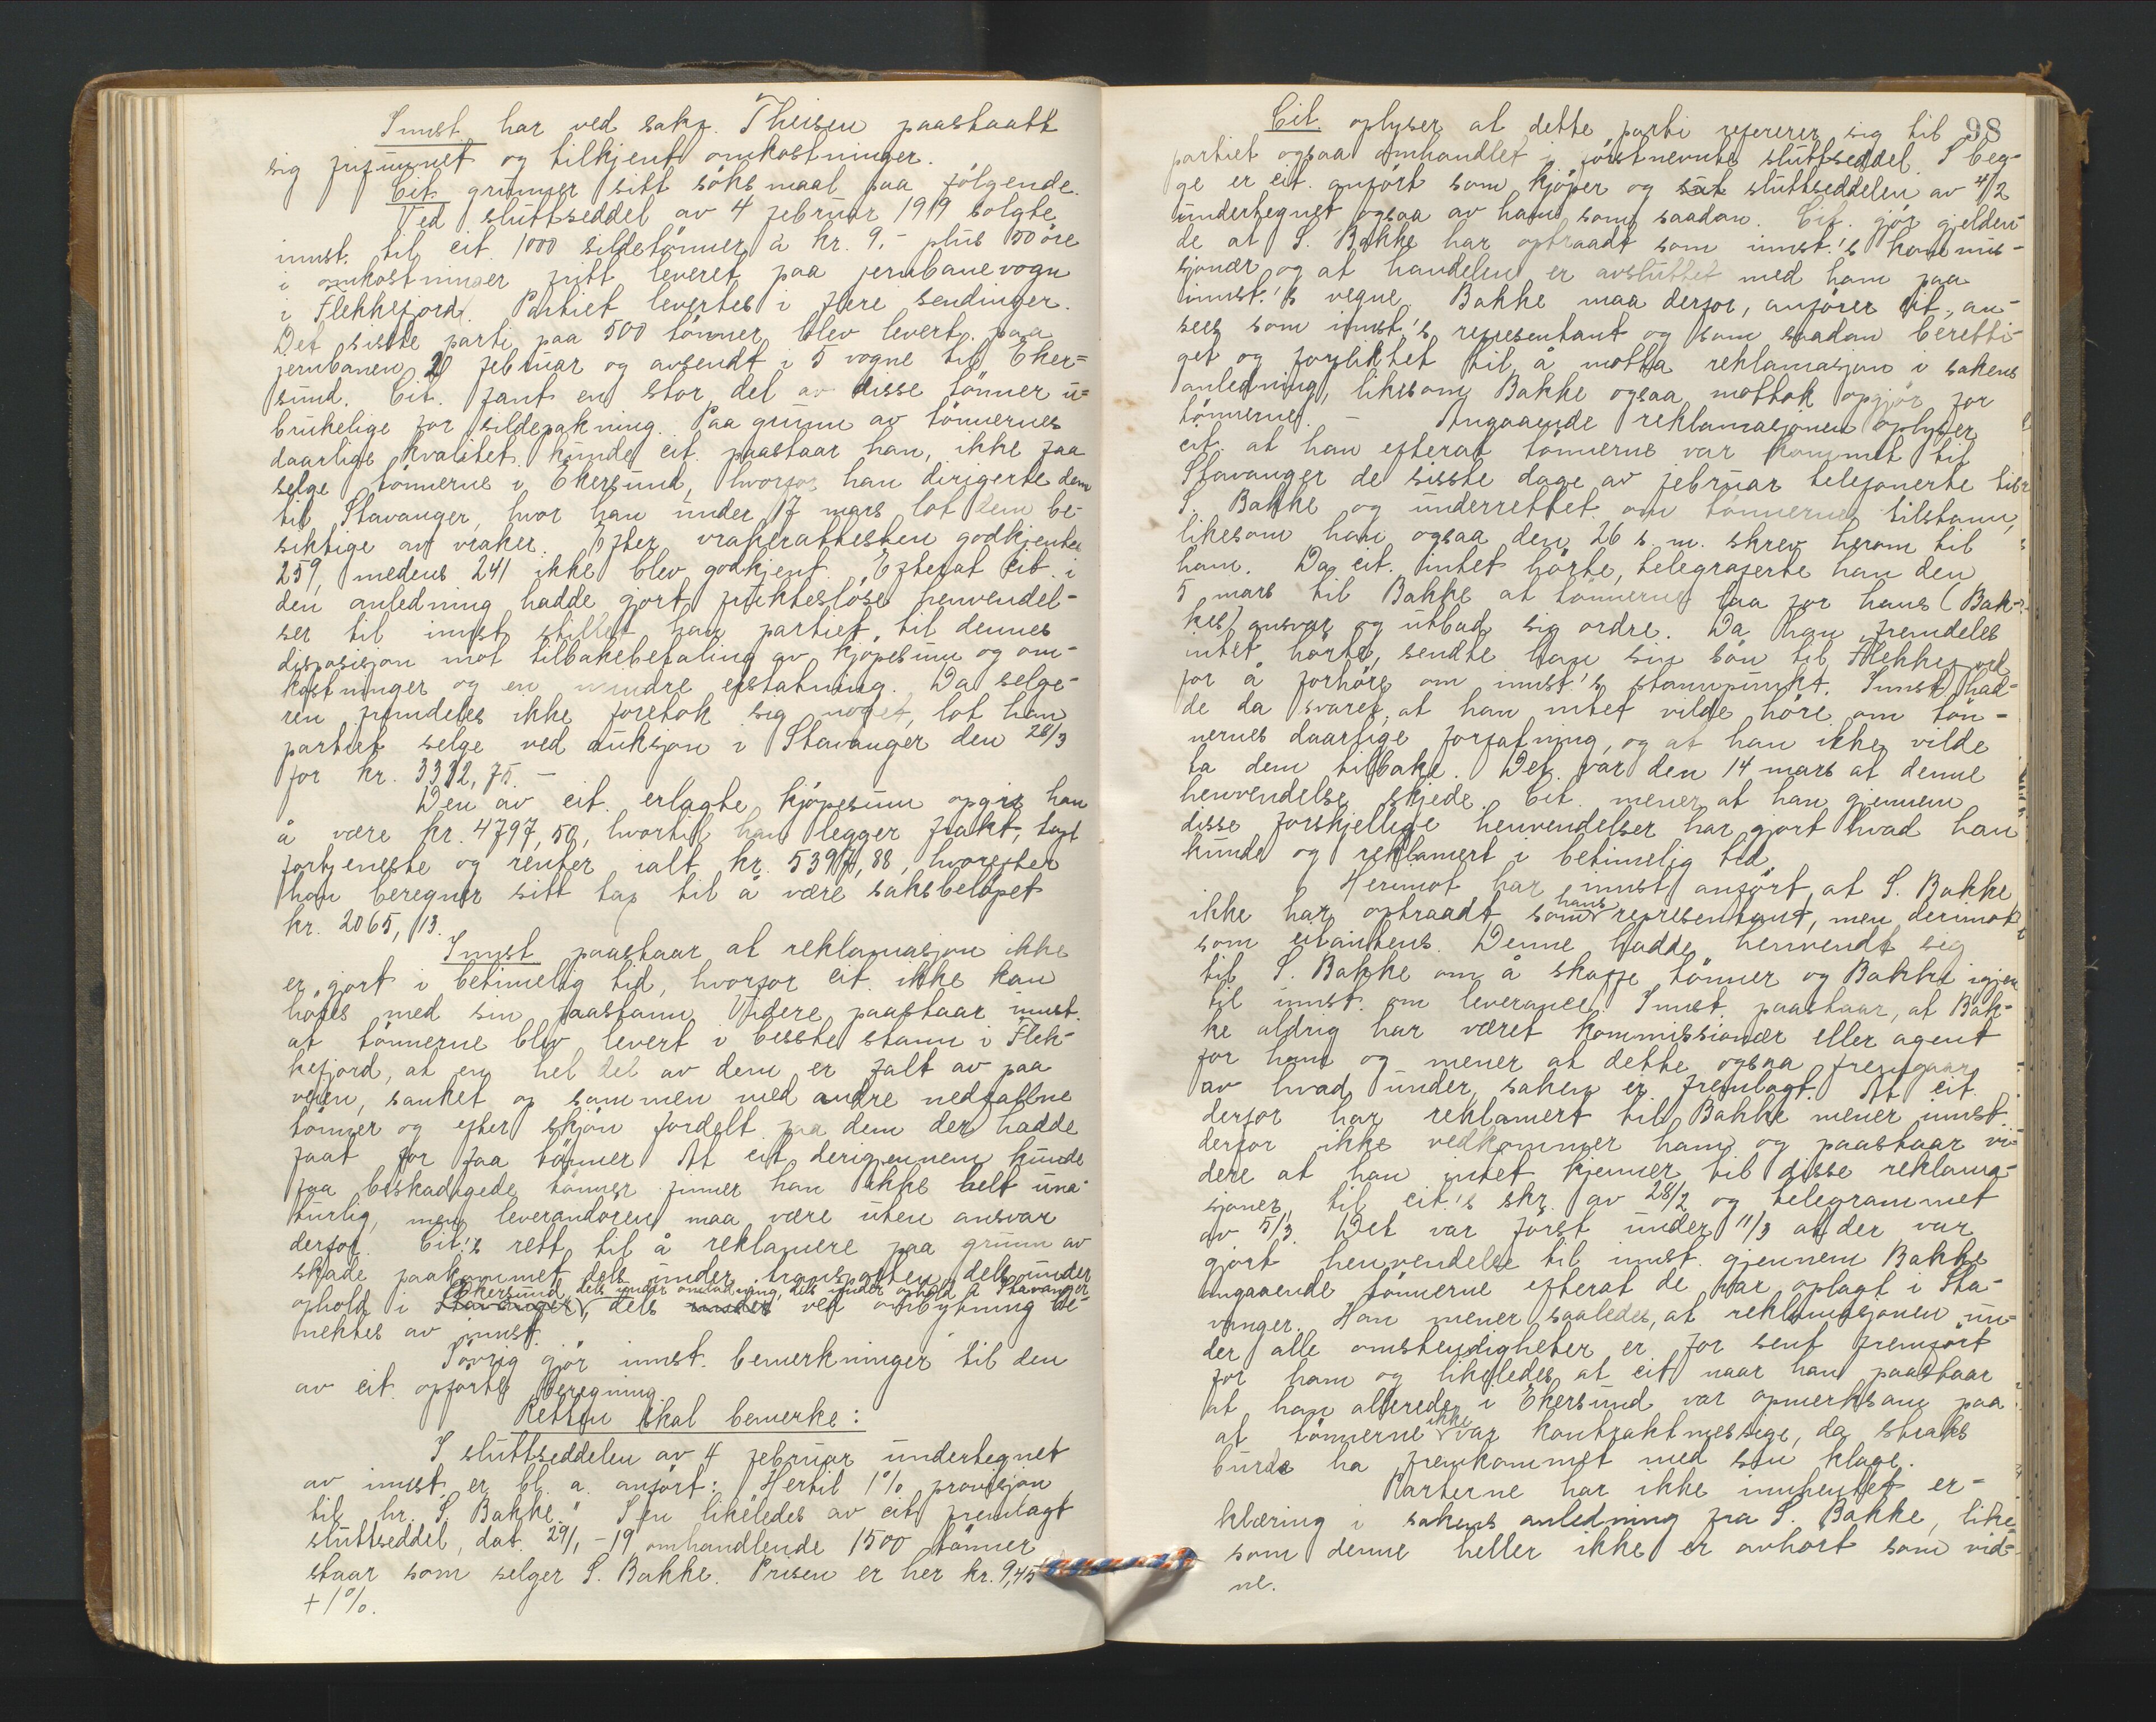 Innst. har ved sakf. Theisen paastaatt
sig frifunnet og tilkjent omkostninger.
Cit. grunner sitt søksmaal paa følgende.
Ved sluttseddel av 4 februar 1919 solgte
innst. til cit. 1000 sildetønner à kr. 9,- plus 50 øre
i omkostninger fritt leveret paa jernbanevogn
i Flekkefjord. Partiet levertes i flere sendinger.
Det siste parti paa 500 tønner blev levert paa
jernbanen 20 februar og avsendt i 5 vogne til Eker-
sund. Cit. fant en stor del av disse tønner u-
brukelige for sildepakning. Paa grunn av tønnernes
daarlige kvalitet kunde cit. paastaar han, ikke faa
selge tønnerne i Ekersund, hvorfor han dirigerte dem
til Stavanger, hvor han under 17 mars lot dem be-
siktige av vraker. Efter vrakerattesten godkjentes
259, medens 241 ikke blev godkjent. Efterat cit. i
den anledning hadde gjort frukteslöse henvendel-
ser til innst. stillet han partiet til dennes
disposisjon mot tilbakebetaling av kjöpesum og om-
kostninger og en mindre erstatning. Da selge-
ren fremdeles ikke foretok sig noget, lot han
partiet selge ved auksjon i Stavanger den 26/3
for kr. 3332,75. -
Den av cit. erlagte kjöpesum opgir han
å være kr. 4797,50, hvortil han legger frakt, tapt
fortjeneste og renter ialt kr. 5397,88, hvorefter
han beregner sitt tap til å være saksbelöpet
kr. 2065,13.
Innst. paastaar at reklamasjon ikke
er gjort i betimelig tid, hvorfor cit. ikke kan
höres med sin paastann. Videre paastaar innst.
at tönnerne blev levert i beste stann i Flek-
kefjord, at en hel del av dem er falt av paa
veien, sanket op sammen med andre nedfallne
tönner og efter skjön fordelt paa dem der hadde
faat for faa tönner. At cit. derigjennem kunde
faa beskadigede tönner finner han ikke helt una-
turlig, men leverandören maa være uten ansvar
derfor. Cit's rett til å reklamere paa grunn av
skade paakommet dels under transporten, dels under
Ekersund, dels under omladning, dels under ophold i Stavanger
ophold i Stavanger, dels under ved ombytning be-
nektes av innst.
Iövrig gjör innst. bemerkninger til den
av cit. opförte beregning.
Retten skal bemerke:
I sluttseddelen av 4 februar undertegnet
av innst. er bl. a. anfört: "Hertil 1% provisjon
til hr. S. Bakke." I en likeledes av cit. fremlagt
sluttseddel, dat. 29/1 -19 omhandlende 1500 tönner
staar som selger S. Bakke. Prisen er her kr. 9,45
+ 1%.
98
Cit. oplyser at dette parti refererer sig til
partiet ogsaa omhandlet i förstnevnte sluttseddel. I beg-
ge er cit. anfört som kjöper og sluttseddelen av 4/2
undertegnet ogsaa av ham som saadan. Cit. gjör gjelden-
de at S. Bakke har optraadt som innst.'s kommis-
sjonær og at handelen er avsluttet med ham paa
innst.'s vegne. Bakke maa derfor, anförer cit., an-
sees som innst's representant og som saadan beretti-
get og forpliktet til å motta reklamasjon i sakens
anledning, likesom Bakke ogsaa mottok opgjör for
tönnerne. - Angaaende reklamasjonen oplyser
cit. at han efterat tönnerne var kommet til
Stavanger de sisste dage av februar telefonerte til
S. Bakke og underrettet om tönnernes tilstann,
likesom han ogsaa den 26 s. m. skrev herom til
ham. Da cit. intet hörte, telegraferte han den
5 mars til Bakke at tönnerne laa for hans (Bak-
kes) ansvar og utbad sig ordre. Da han fremdeles
intet hörte, sendte han sin sön til Flekkefjord
for å forhöre om innst's stannpunkt. Innst. had-
de da svaret, at han intet vilde höre om tön-
nernes daarlige forfatning, og at han ikke vilde
ta dem tilbake. Det var den 14 mars at denne
henvendelse skjede. Cit. mener at han gjennem
disse forskjellige henvendelser har gjort hvad han
kunde og reklamert i betimelig tid.
Herimot har innst. anfört, at S. Bakke
hans
ikke har optraadt som representant, men derimot
som citantens. Denne hadde henvendt sig
til S. Bakke om å skaffe tönner og Bakke igjen
til innst. om leverance. Innst. paastaar, at Bak-
ke aldrig har været kommissionær eller agent
for ham og mener at dette ogsaa fremgaar
av hvad under saken er fremlagt. At cit.
derfor har reklamert til Bakke mener innst.
derfor ikke vedkommer ham og paastaar vi-
dere at han intet kjenner til disse reklama-
sjoner, til cit.'s skr. av 28/2 og telegrammet
av 5/3. Det var först under 11/3 at der var
gjort henvendelse til innst. gjennem Bakke
angaaende tönnerne efterat de var oplagt i Sta-
vanger. Han mener saaledes, at reklamasjonen un-
der alle omstendigheter er for sent fremfört
for ham og likeledes at cit. naar han paastaar
at han allerede i Ekersund var opmerksom paa
ikke
at tönnerne var kontraktmessige, da straks
burde ha fremkommet med sin klage.
Parterne har ikke innhentet er-
klæring i sakens anledning fra S. Bakke, like-
som denne heller ikke er avhört som vid-
ne.